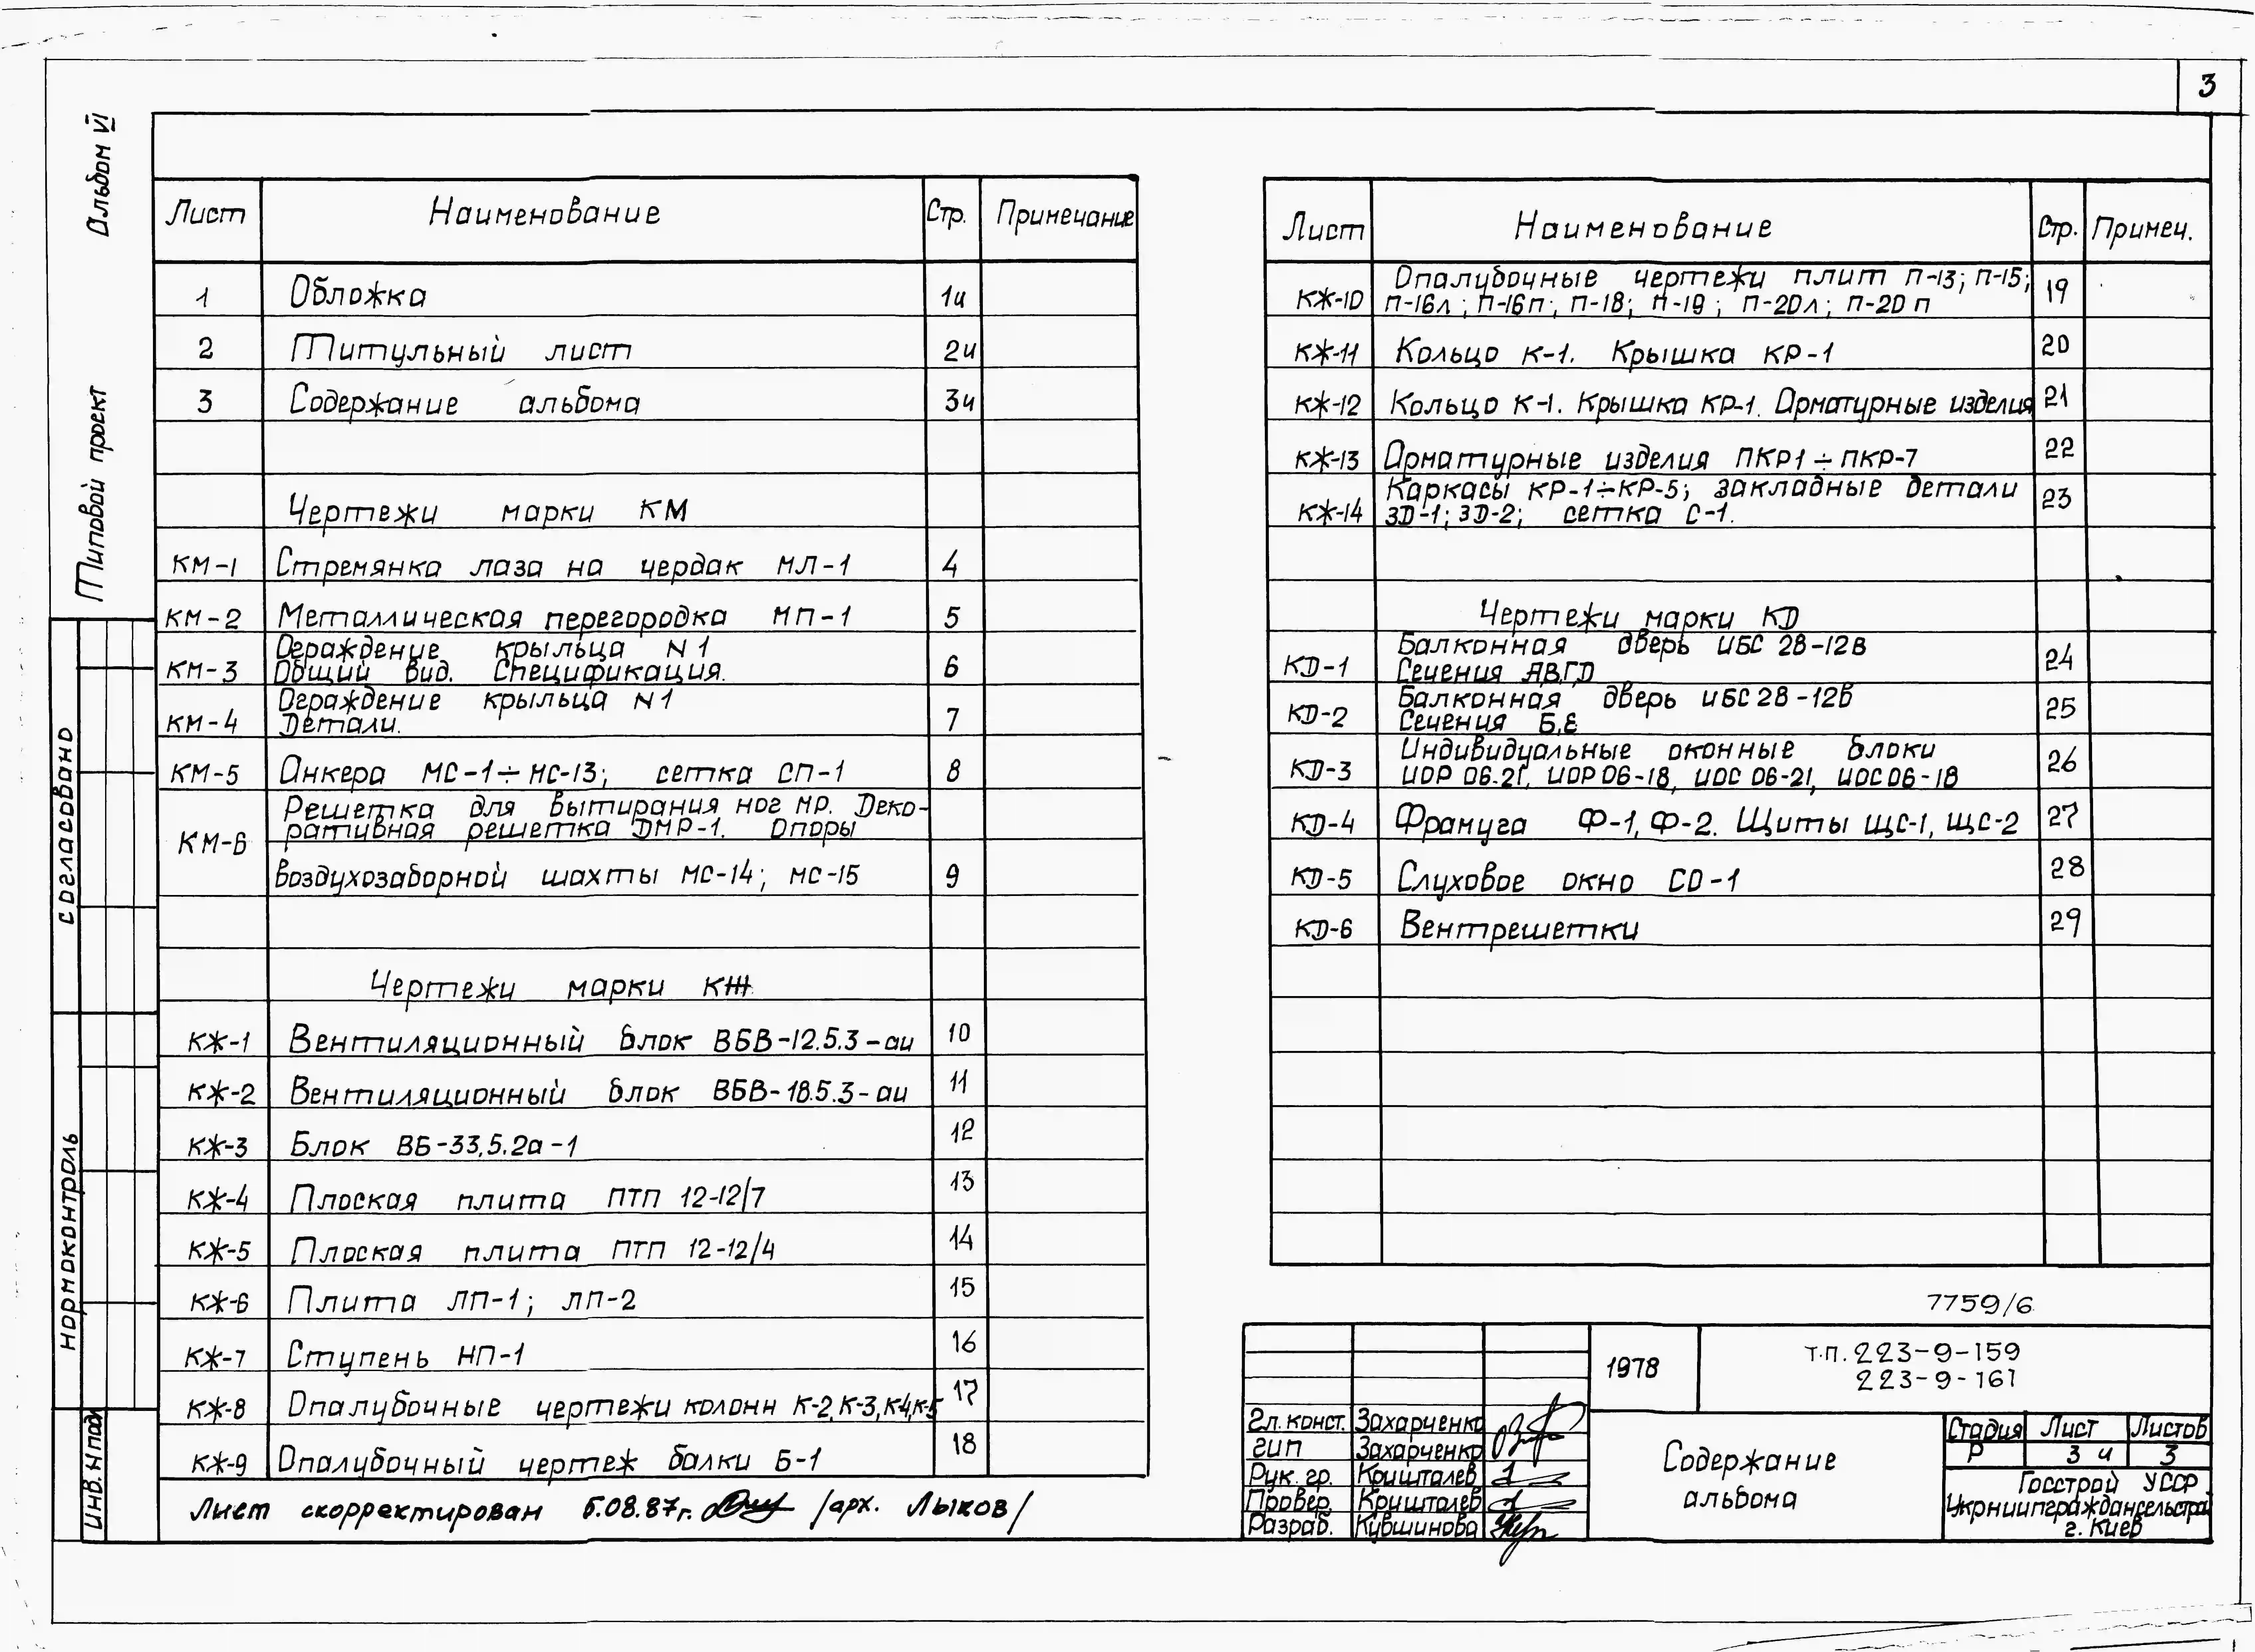 3
Альбом VI
Типовой проект
согласовано
нормоконтроль
инв. N под
Лист Наименование Стр. Примечание
1 Обложка 1и
2 Титульный лист 2и
3 Содержание альбома 3и
Чертежи марки КМ
КМ-1 Стремянка лаза на чердак МЛ-1 4
КМ-2 Металлическая перегородка МП-1 5
Ограждение крыльца N1
КМ-3 Общий вид. Спецификация. 6
Ограждение крыльца N1
КМ-4 Детали. 7
КМ-5 Анкера МС-1÷МС-13; сетка СП-1 8
Решетка для вытирания ног МР. Деко-
КМ-6 ративная решетка ДМР-1. Опоры
воздухозаборной шахты МС-14; МС-15 9
Чертежи марки КЖ
КЖ-1 Вентиляционный блок ВБВ-12.5.3-аи 10
КЖ-2 Вентиляционный блок ВБВ-18.5.3-аи 11
КЖ-3 Блок ВБ-33.5.2а-1 12
КЖ-4 Плоская плита ПТП 12-12/7 13
КЖ-5 Плоская плита ПТП 12-12/4 14
КЖ-6 Плита ЛП-1; ЛП-2 15
КЖ-7 Ступень НП-1 16
КЖ-8 Опалубочные чертежи колонн К-2,К-3,К4,К-5 17
КЖ-9 Опалубочный чертеж балки Б-1 18
Лист скорректирован 5.08.87г. /арх. Лыков/
Лист Наименование Стр. Примеч.
Опалубочные чертежи плит П-13; П-15;
КЖ-10 П-16л; П-16п; П-18; П-19; П-20л; П-20п 19
КЖ-11 Кольцо К-1. Крышка КР-1 20
КЖ-12 Кольцо К-1. Крышка КР-1. Арматурные изделия 21
КЖ-13 Арматурные изделия ПКР1÷ПКР-7 22
Каркасы КР-1÷КР-5; закладные детали
КЖ-14 ЗД-1; ЗД-2; сетка С-1. 23
Чертежи марки КД
Балконная дверь ИБС 28-12в
КД-1 Сечения А,В,Г,Д 24
Балконная дверь ИБС 28-12в
КД-2 Сечения Б,Е 25
Индивидуальные оконные блоки
КД-3 ИОР 06-21, ИОР 06-18, ИОС 06-21, ИОС 06-18 26
КД-4 Фрамуга Ф-1, Ф-2. Щиты ЩС-1, ЩС-2 27
КД-5 Слуховое окно СО-1 28
КД-6 Вентрешетки 29
7759/6
1978 т.п. 223-9-159
223-9-161
Гл. конст. Захарченко
ГИП Захарченко
Рук. гр. Кришталев
Провер. Кришталев
Разраб. Кувшинова
Содержание
альбома
Стадия Лист Листов
Р 3и 3
Госстрой УССР
Укрниипгражданельстрой
г. Киев